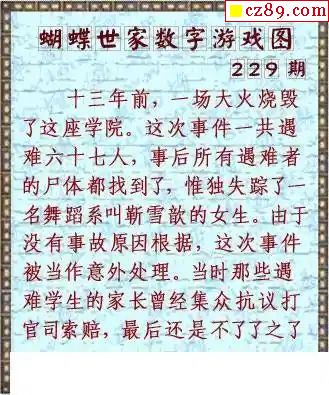 cz89.com
蝴蝶世家数字游戏图
229 期
十三年前，一场大火烧毁
了这座学院。这次事件一共遇
难六十七人，事后所有遇难者
的尸体都找到了，惟独失踪了一
名舞蹈系叫靳雪歆的女生。由于
没有事故原因根据，这次事件
被当作意外处理。当时那些遇
难学生的家长曾经集众抗议打
官司索赔，最后还是不了了之了